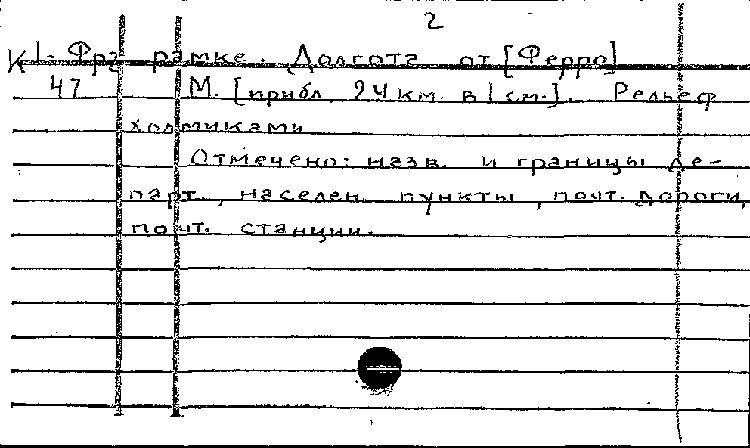 2
К 1-Фрз рамке. Долгота от [Ферро]
47 М. [прибл. 24 км. в 1 см.]. Рельеф
холмиками
Отмечено: назв. и границы де-
парт., населен. пункты, почт. дороги,
почт. станции.